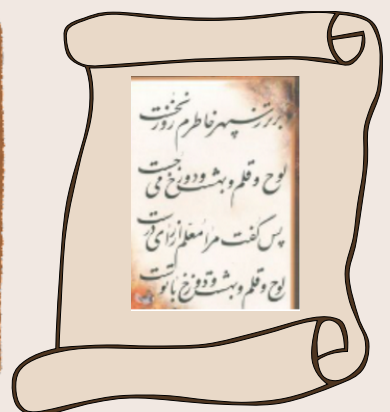 برتر ز سپهر خاطرم روز نخست
لوح و قلم و بهشت و دوزخ می جست
پس گفت مرا معلم از رای درست
لوح و قلم و بهشت و دوزخ با توست